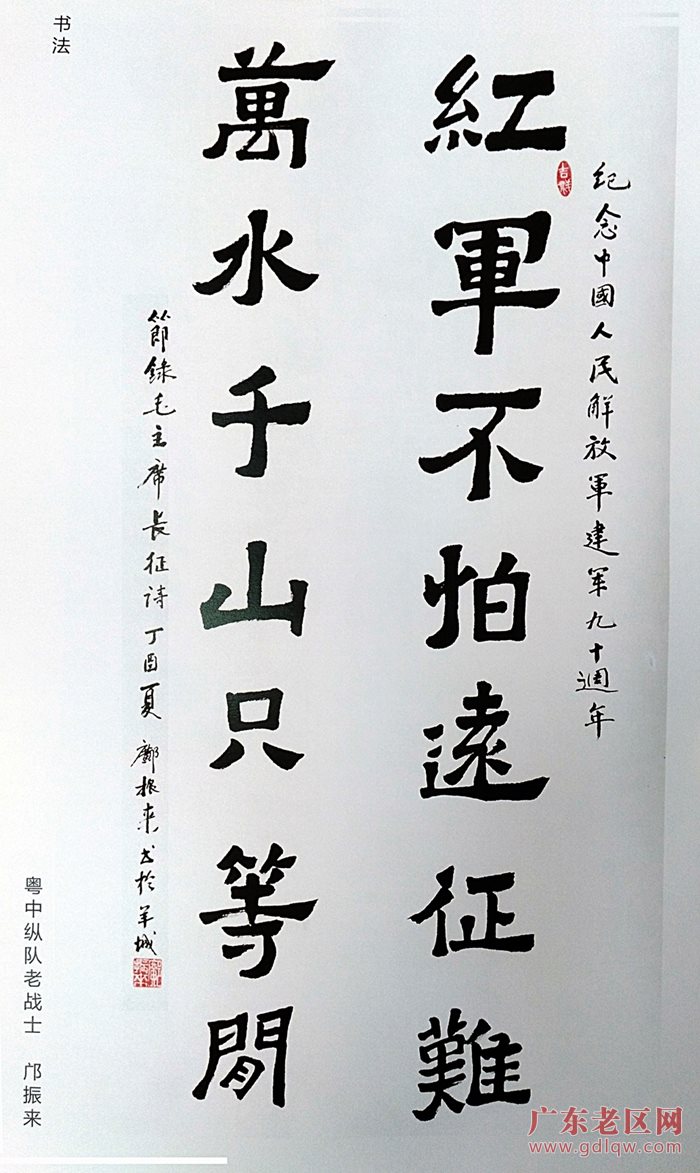 书法
纪念中國人民解放軍建军九十週年
吉祥
紅軍不怕遠征難
萬水千山只等閒
節録毛主席長征诗丁酉夏鄺振来书於羊城
粤中纵队老战士 邝振来
广东老区网
www.gdlqw.com